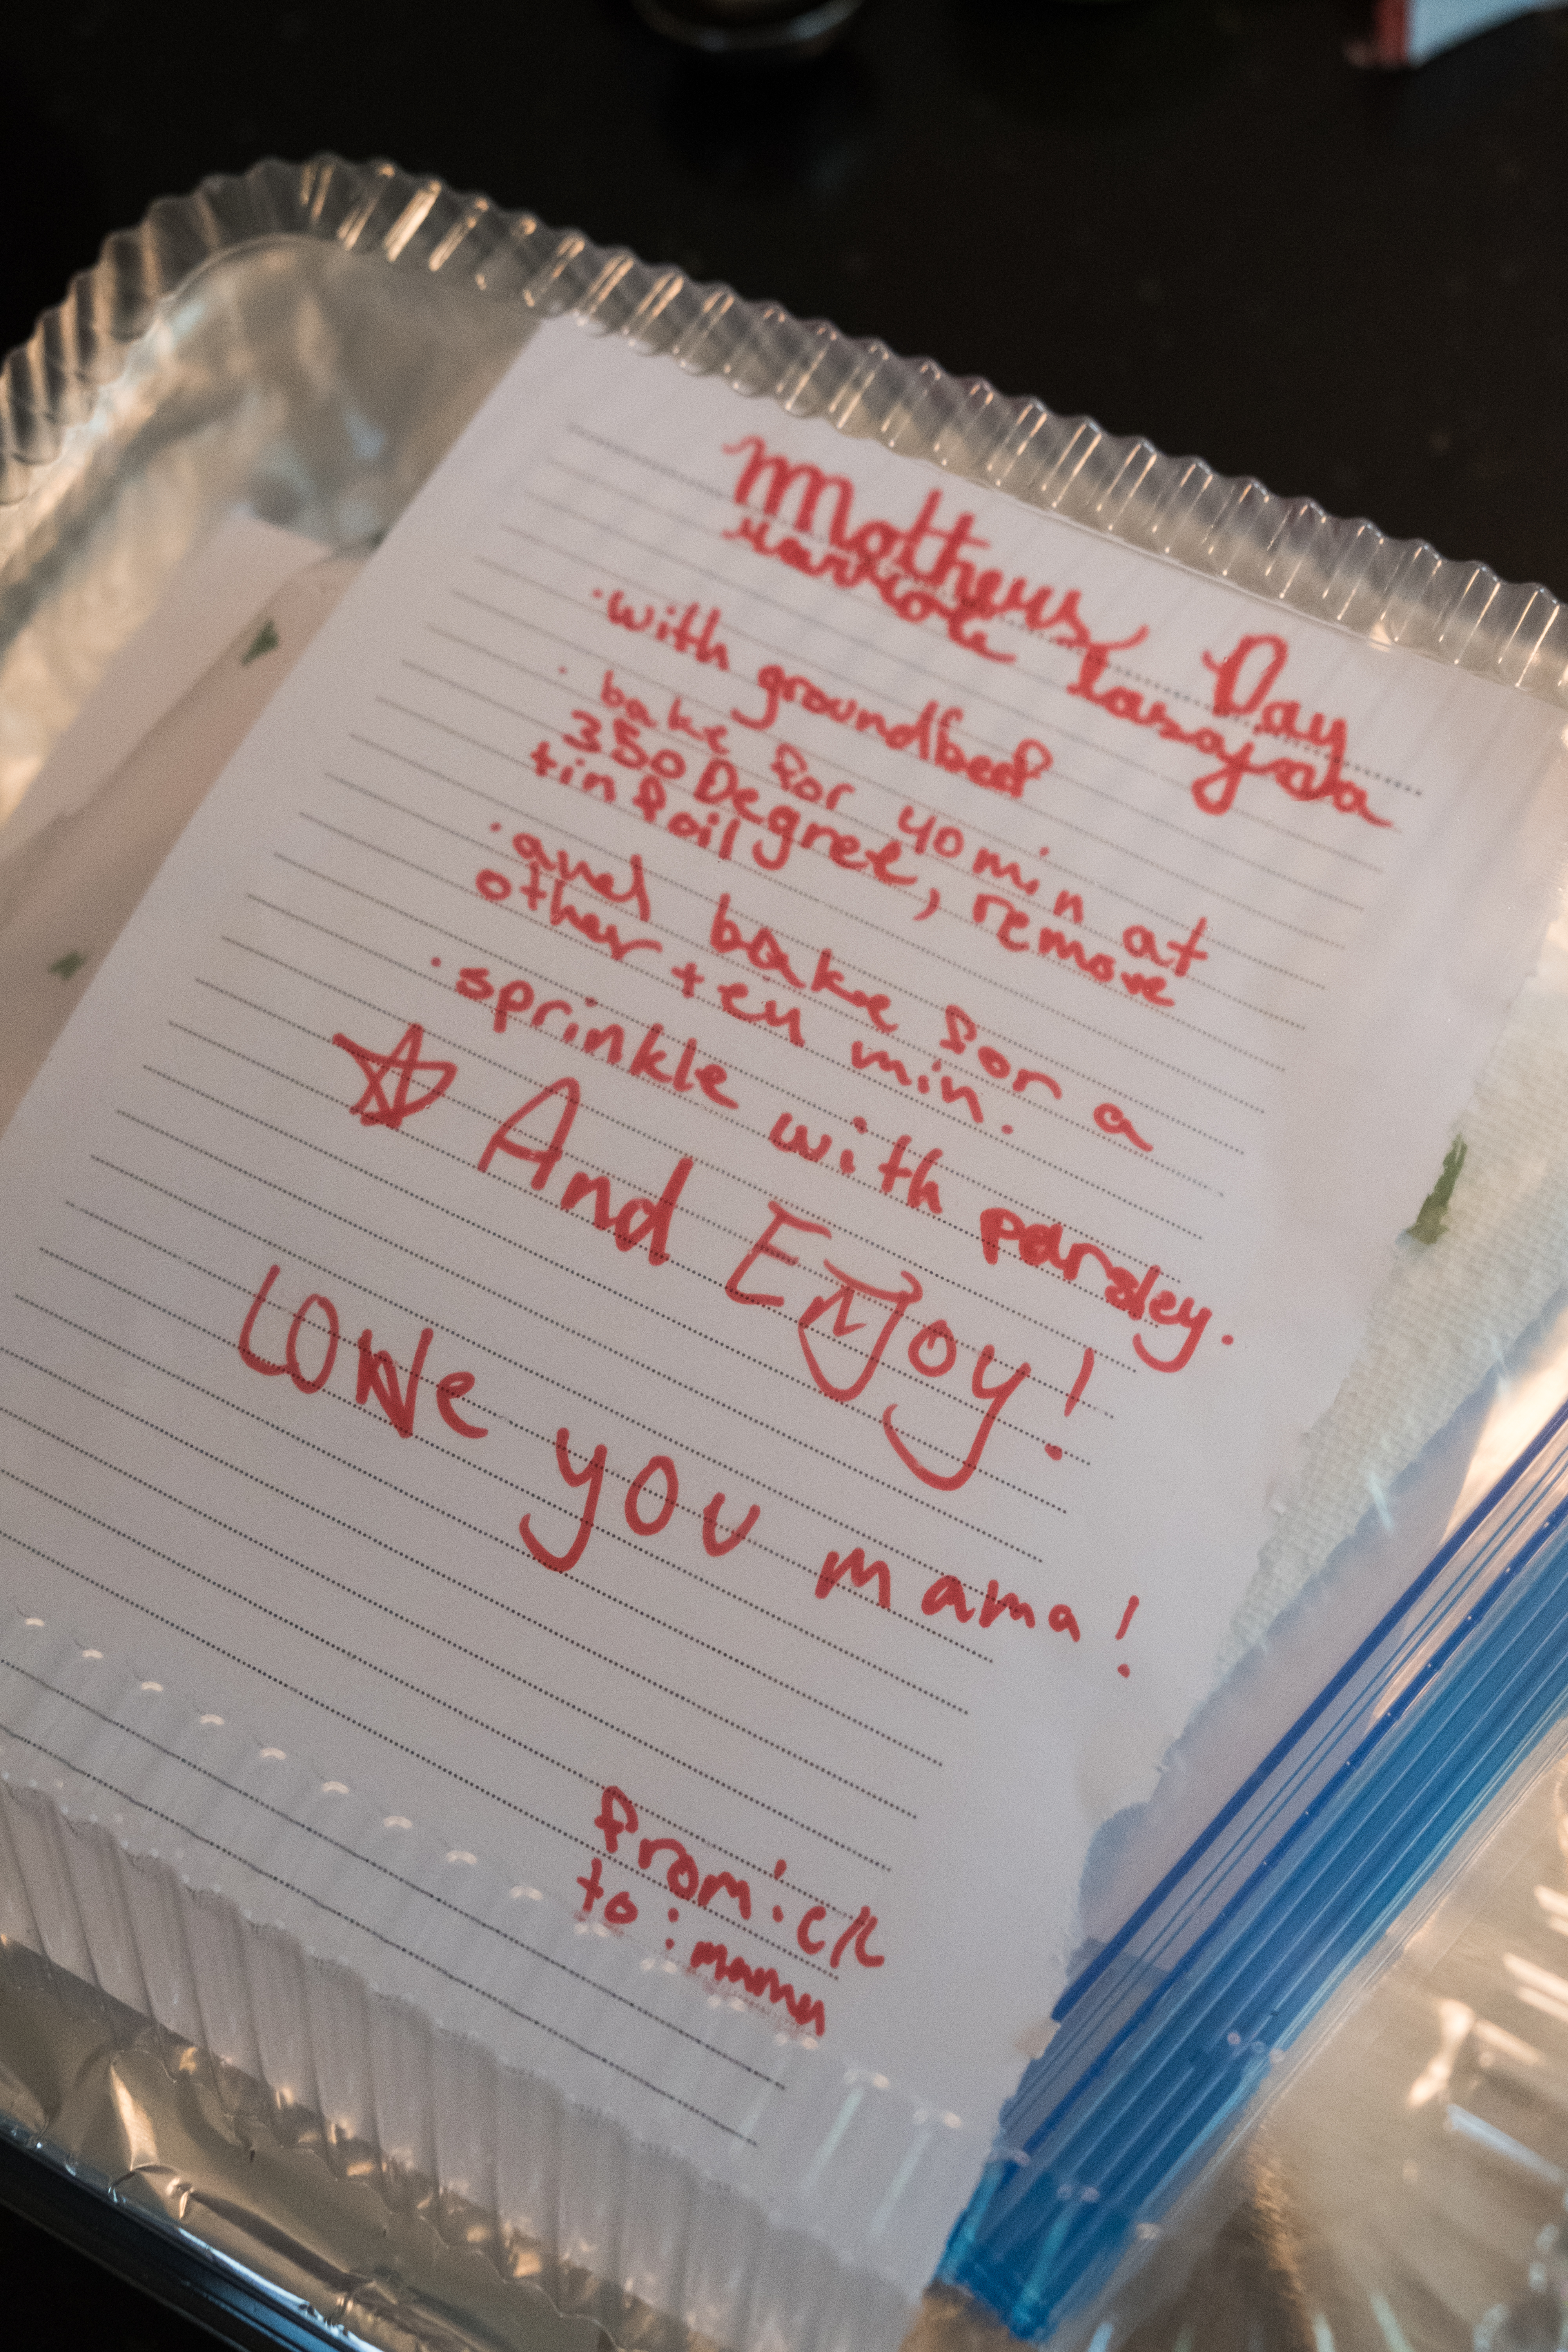 Mothers Day
Lasagna
· with groundbeef
· bake for 40 min at
350 Degree, remove
tin foil
· and bake for a
other ten min.
· sprinkle with parsley.
And ENJoy!
LOVe you mama!
from: CK
to: mama